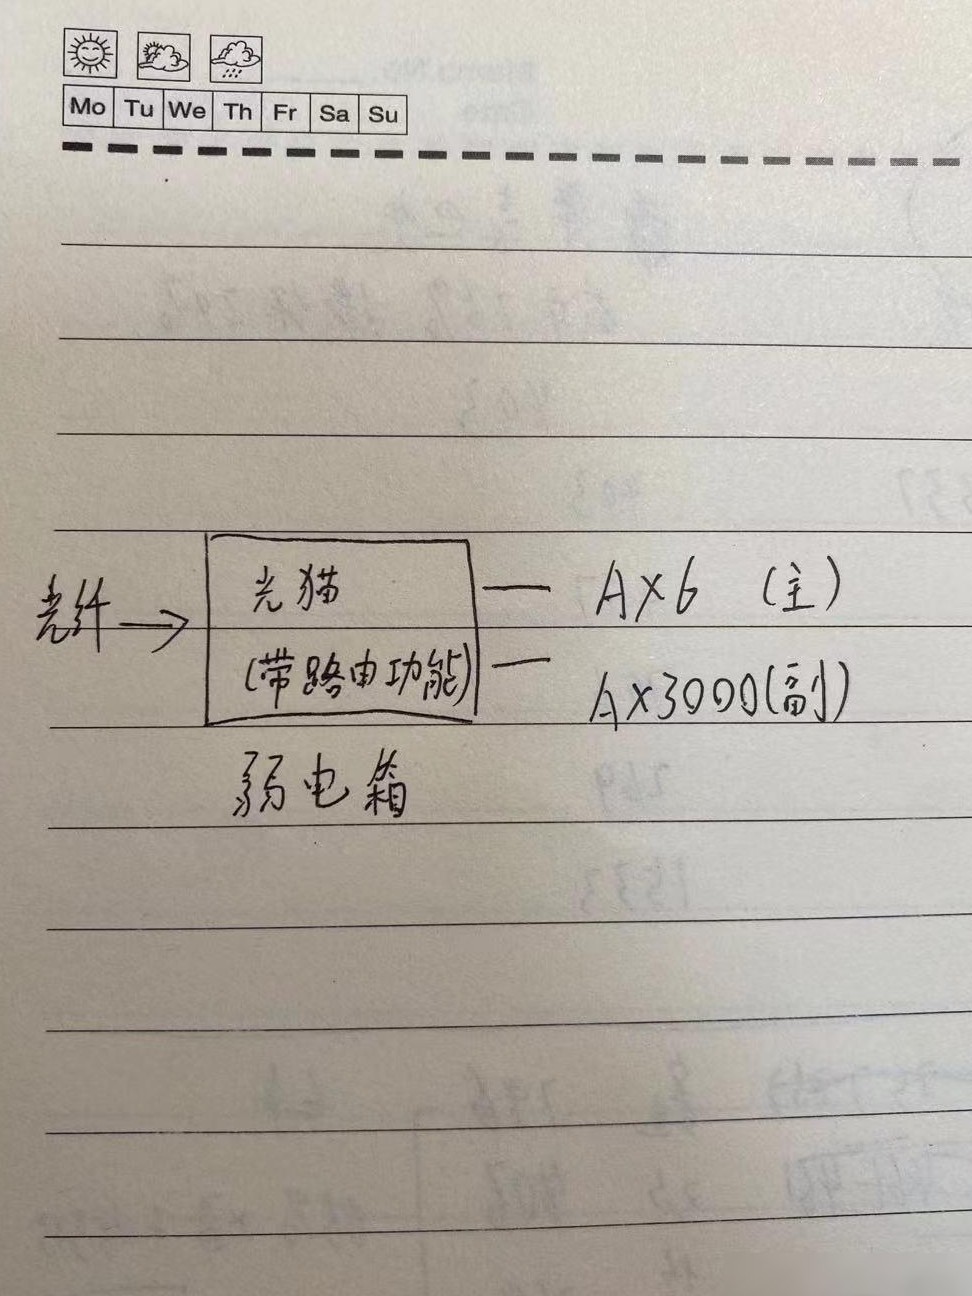 Mo Tu We Th Fr Sa Su
光纤 → 光猫 — AX6 (主)
(带路由功能) — AX3000(副)
弱电箱